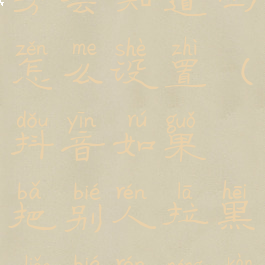 么会知道
zěn me shè zhì
怎么设置（
dǒu yīn rú guǒ
抖音如果
bǎ bié rén lā hēi
把别人拉黑
bié rén